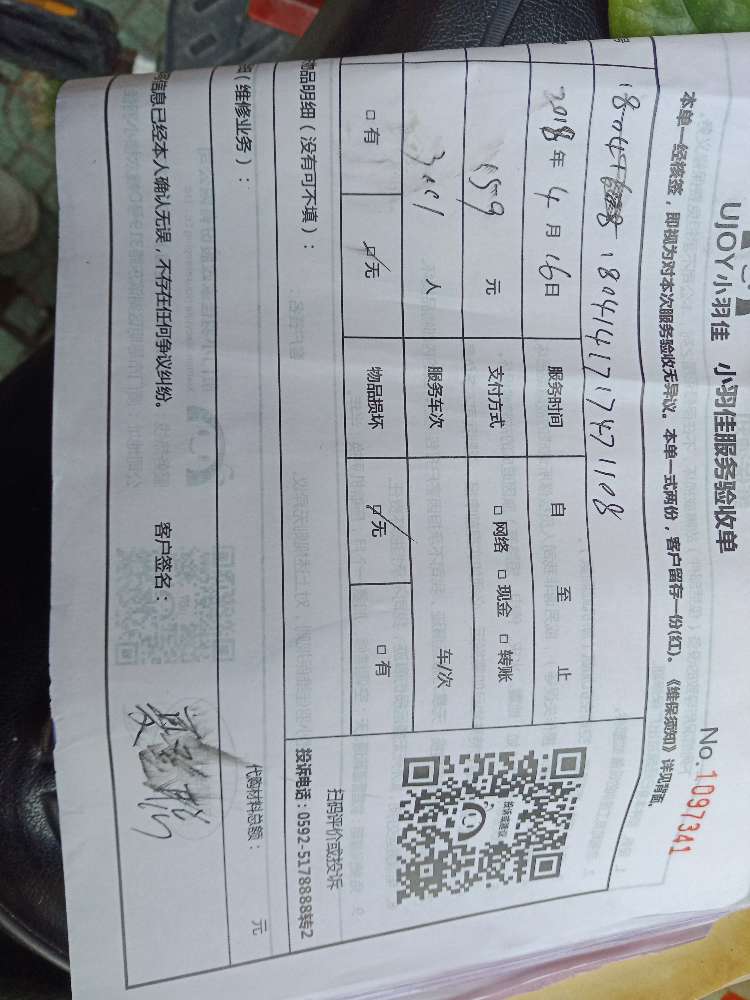 UJOY小羽佳 小羽佳服务验收单 No.1097341
本单一经核签，即视为对本次服务验收无异议。本单一式两份，客户留存一份(红)。《维保须知》详见背面。
1804141717471108
2018年4月16日 服务时间 自 至 止
159元 支付方式 □ 网络 □ 现金 □ 转账
人 服务车次 车/次
□ 有 □ 无 物品损坏 □ 无 □ 有
投诉或建议
扫码评价或投诉
投诉电话：0592-5178888转2
物品明细（没有可不填）：
（维修业务）： 代购材料总额： 元
信息已经本人确认无误，不存在任何争议纠纷。 客户签名：